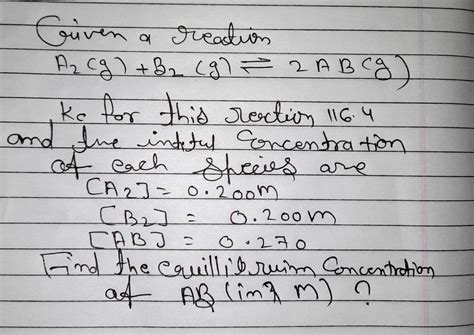 Given a reaction
A2 (g) + B2 (g) ⇌ 2 A B (g)
Kc for this rection 116.4
and the intitul Concentration
of each Species are
[A2] = 0.200m
[B2] = 0.200m
[AB] = 0.270
Find the equillibruim Concentration
of AB (in M) ?